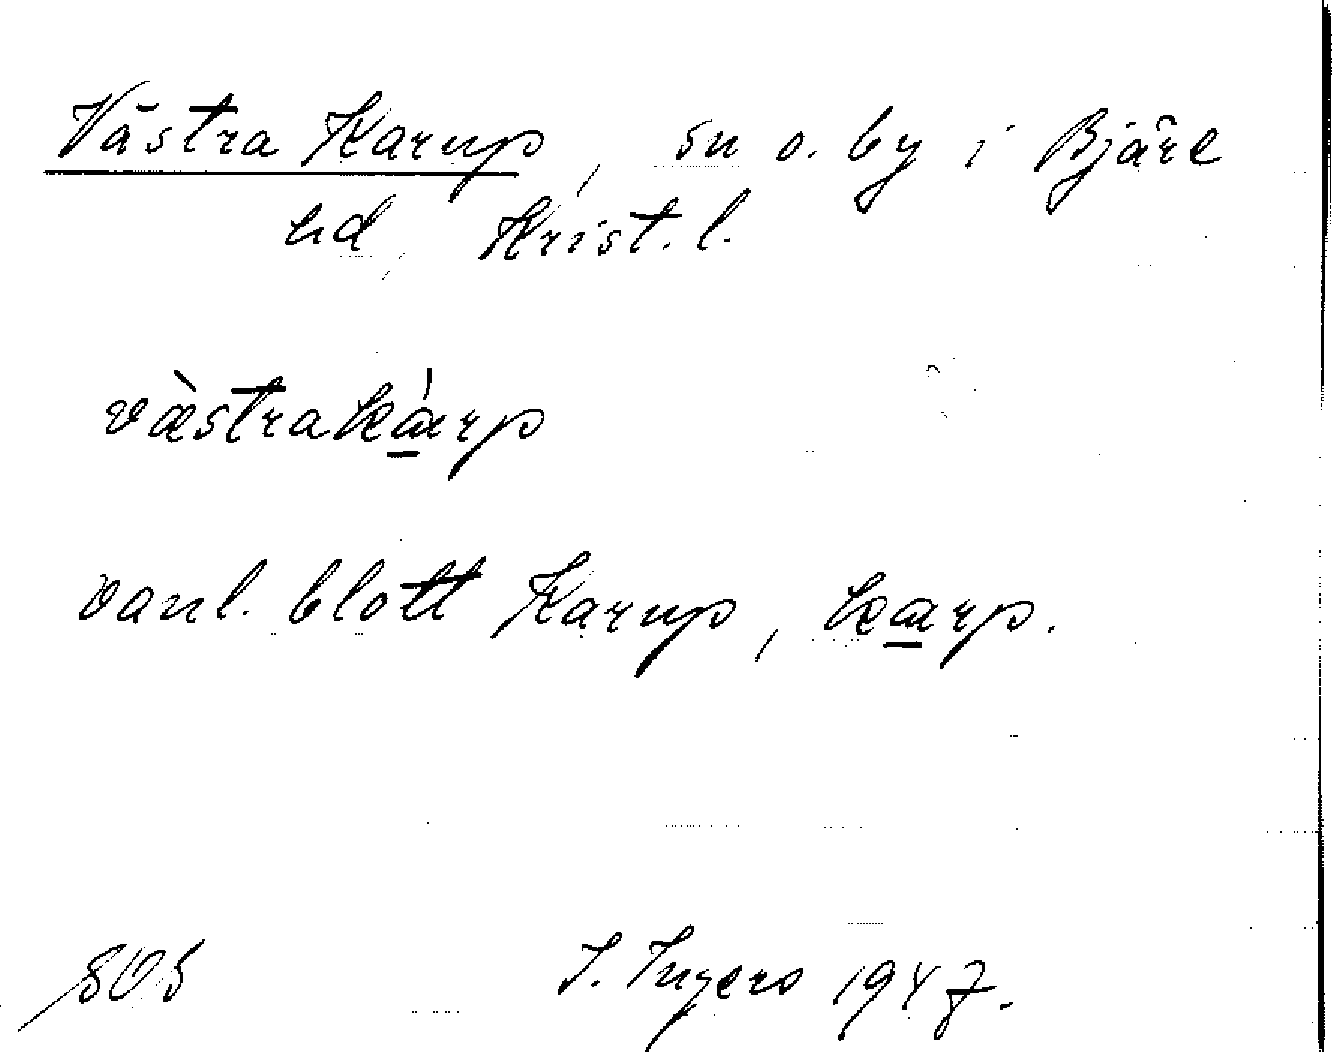 Västra Karup, sn o. by i Bjäre
hd, Krist. l.
vàstrakárp
vanl. blott Karup, karp.
SOS I. Ingers 1947.